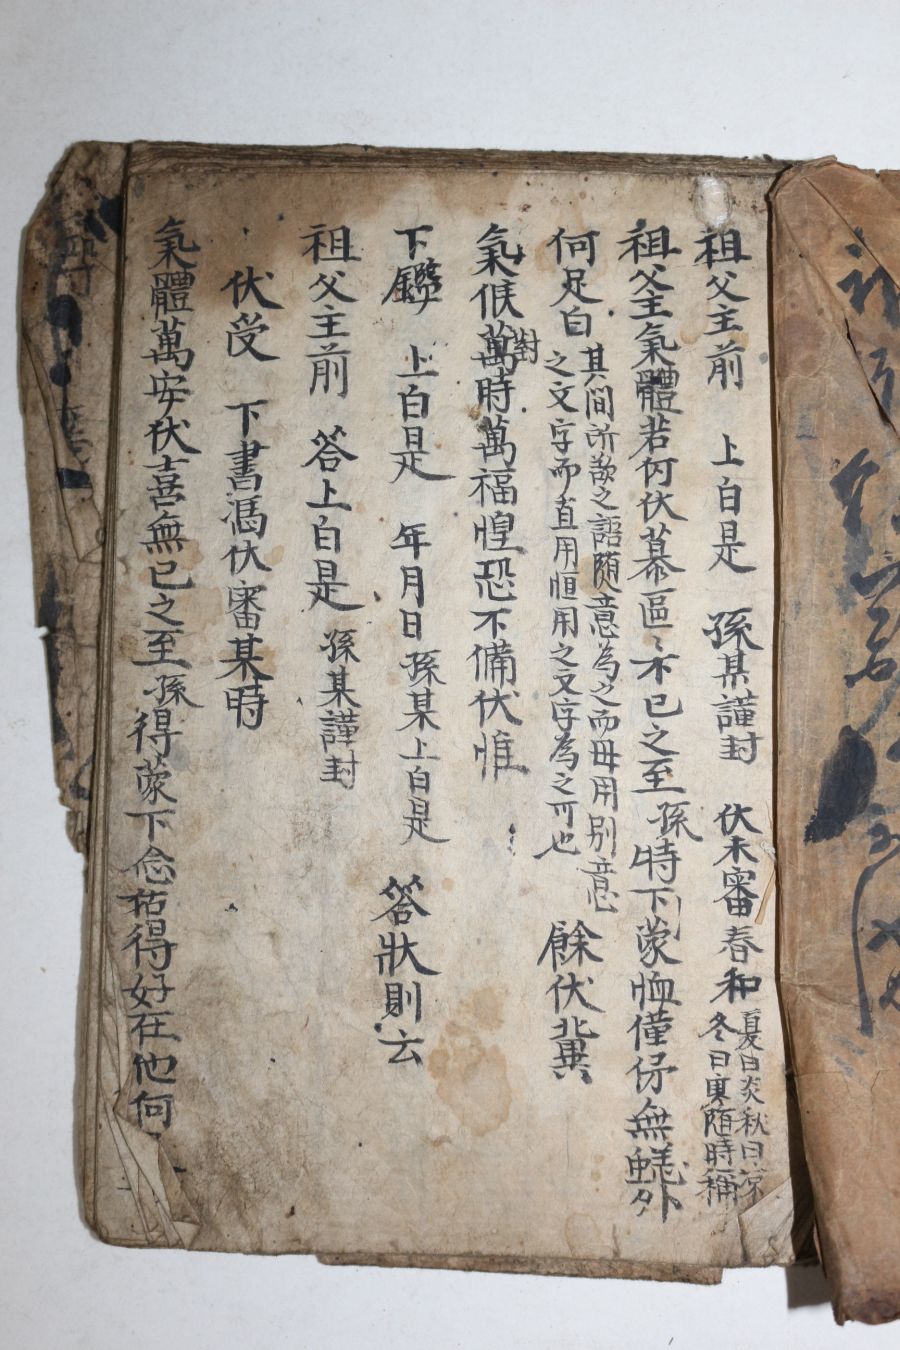 祖父主前 上白是 孫某謹封 伏未審春和 夏曰炎秋曰凉冬曰寒随時稱
祖父主氣體若何伏慕區〻不已之至孫特下蒙恤僅保無蟻外
何足白 其間所欲之語随意為之而毋用别意之文字而直用恒用之文字為之可也 餘伏冀
氣候對時萬福惶恐不備伏惟
下鑑 上白是 年月日孫某上白是 答狀則云
祖父主前 答上白是 孫某謹封
伏受 下書馮伏審某時
氣體萬安伏喜無已之至孫得蒙下念祐得好在他何